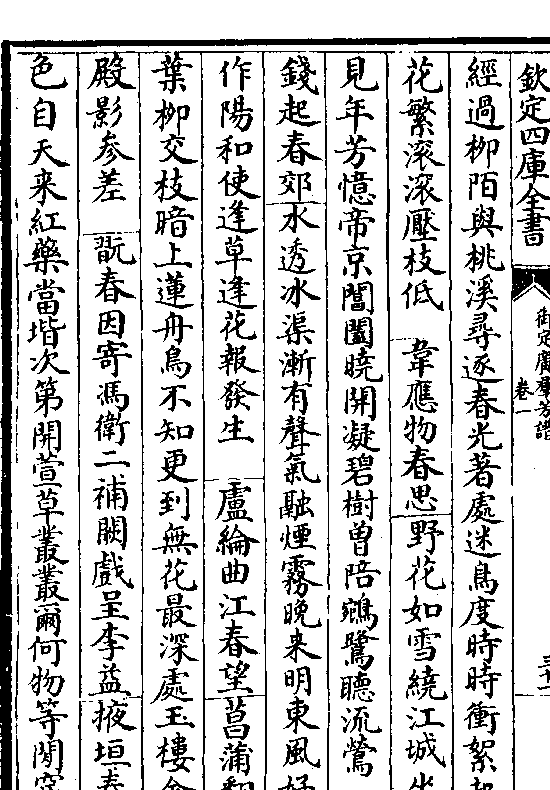 欽定四庫全書
御定廣羣芳譜
卷一
三十一
經過柳陌與桃溪尋逐春光著處迷鳥度時時衝絮起
花繁滾滾壓枝低　韋應物春思野花如雪繞江城坐
見年芳憶帝京閶闔曉開凝碧樹曾陪鵷鷺聽流鶯
錢起春郊水透冰渠漸有聲氣融煙霧晚来明東風好
作陽和使逢草逢花報發生　盧綸曲江春望菖蒲翻
葉柳交枝暗上蓮舟鳥不知更到無花最深處玉樓金
殿影參差　翫春因寄馮衛二補闕戲呈李益掖垣春
色自天来紅藥當堦次第開萱草叢叢爾何物等閒穿